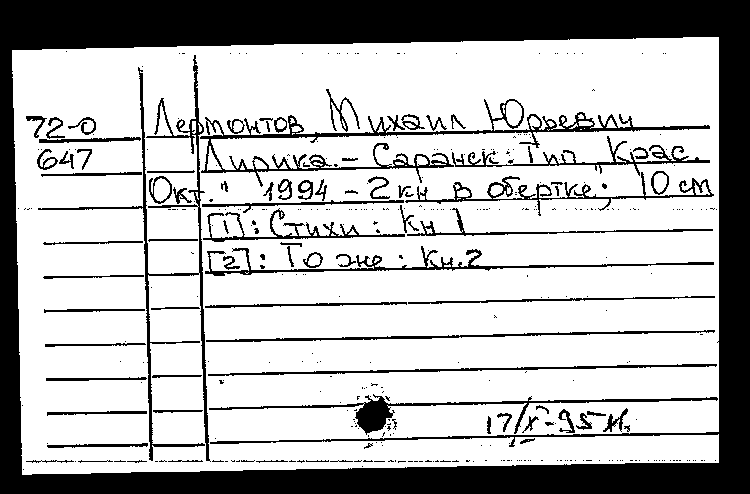 72-0 Лермонтов, Михаил Юрьевич
647 Лирика. – Саранск: Тип. „Крас.
Окт.", 1994. – 2 кн. в обертке; 10 см
[1]: Стихи: Кн 1
[2]: То же: Кн. 2
17/X-95